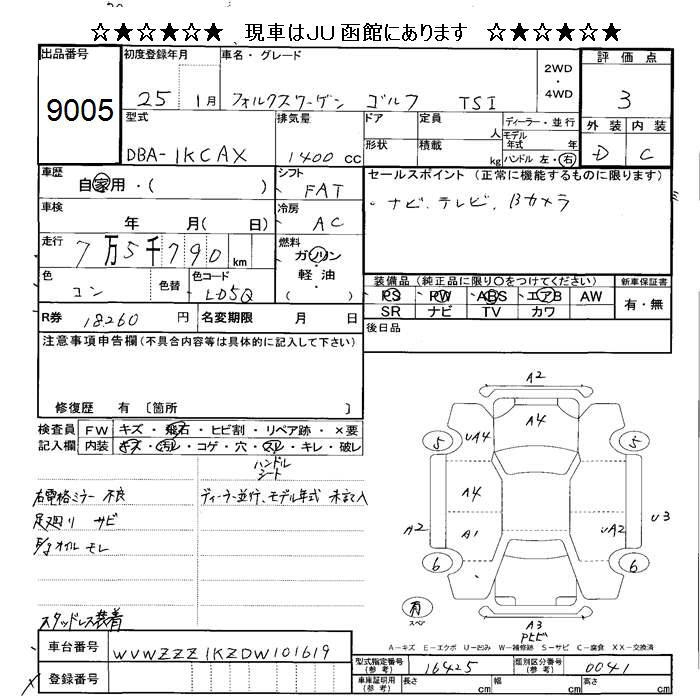 ☆★☆★☆★ 現車はJU函館にあります ☆★☆★☆★
出品番号 初度登録年月 車名・グレード 2WD・4WD 評価点
9005 25 1月 フォルクスワーゲン ゴルフ TSI 3
型式 排気量 ドア 定員 人 ディーラー・並行 外装 内装
モデル年式 年
DBA-1KCAX 1400 cc 形状 積載 kg ハンドル 左・右 D C
車歴 自家用・( ) シフト FAT セールスポイント (正常に機能するものに限ります)
車検 年 月( 日) 冷房 AC ・ナビ、テレビ、Bカメラ
走行 7万5千790 km 燃料 ガソリン・軽油 ( )
装備品 (純正品に限り〇をつけてください) 新車保証書
色 コン 色替 色コード LD5Q PS PW ABS エアB AW 有・無
SR ナビ TV カワ
R券 18260 円 名変期限 月 日 後日品
注意事項申告欄(不具合内容等は具体的に記入して下さい)
修復歴 有 〔箇所 〕
検査員 FW キズ・飛石・ヒビ割・リペア跡・×要
記入欄 内装 キズ・汚レ・コゲ・穴・スレ・キレ・破レ
ハンドル
シート
右電格ミラー 不良 ディーラー並行、モデル年式 未記入
足廻り サビ
オイル モレ
スタッドレス装着
A2
A4
5 UA4 5
A4
A2 A1 UA2 U3
6 6
有
スペア
A3
PヒビA-キズ E-エクボ U-凹み W-補修跡 S-サビ C-腐食 XX-交換済
車台番号 WVWZZZ1KZDW101619
型式指定番号(参考) 16425 類別区分番号(参考) 0041
登録番号 車庫証明用(参考) 長さ cm 幅 cm 高さ cm